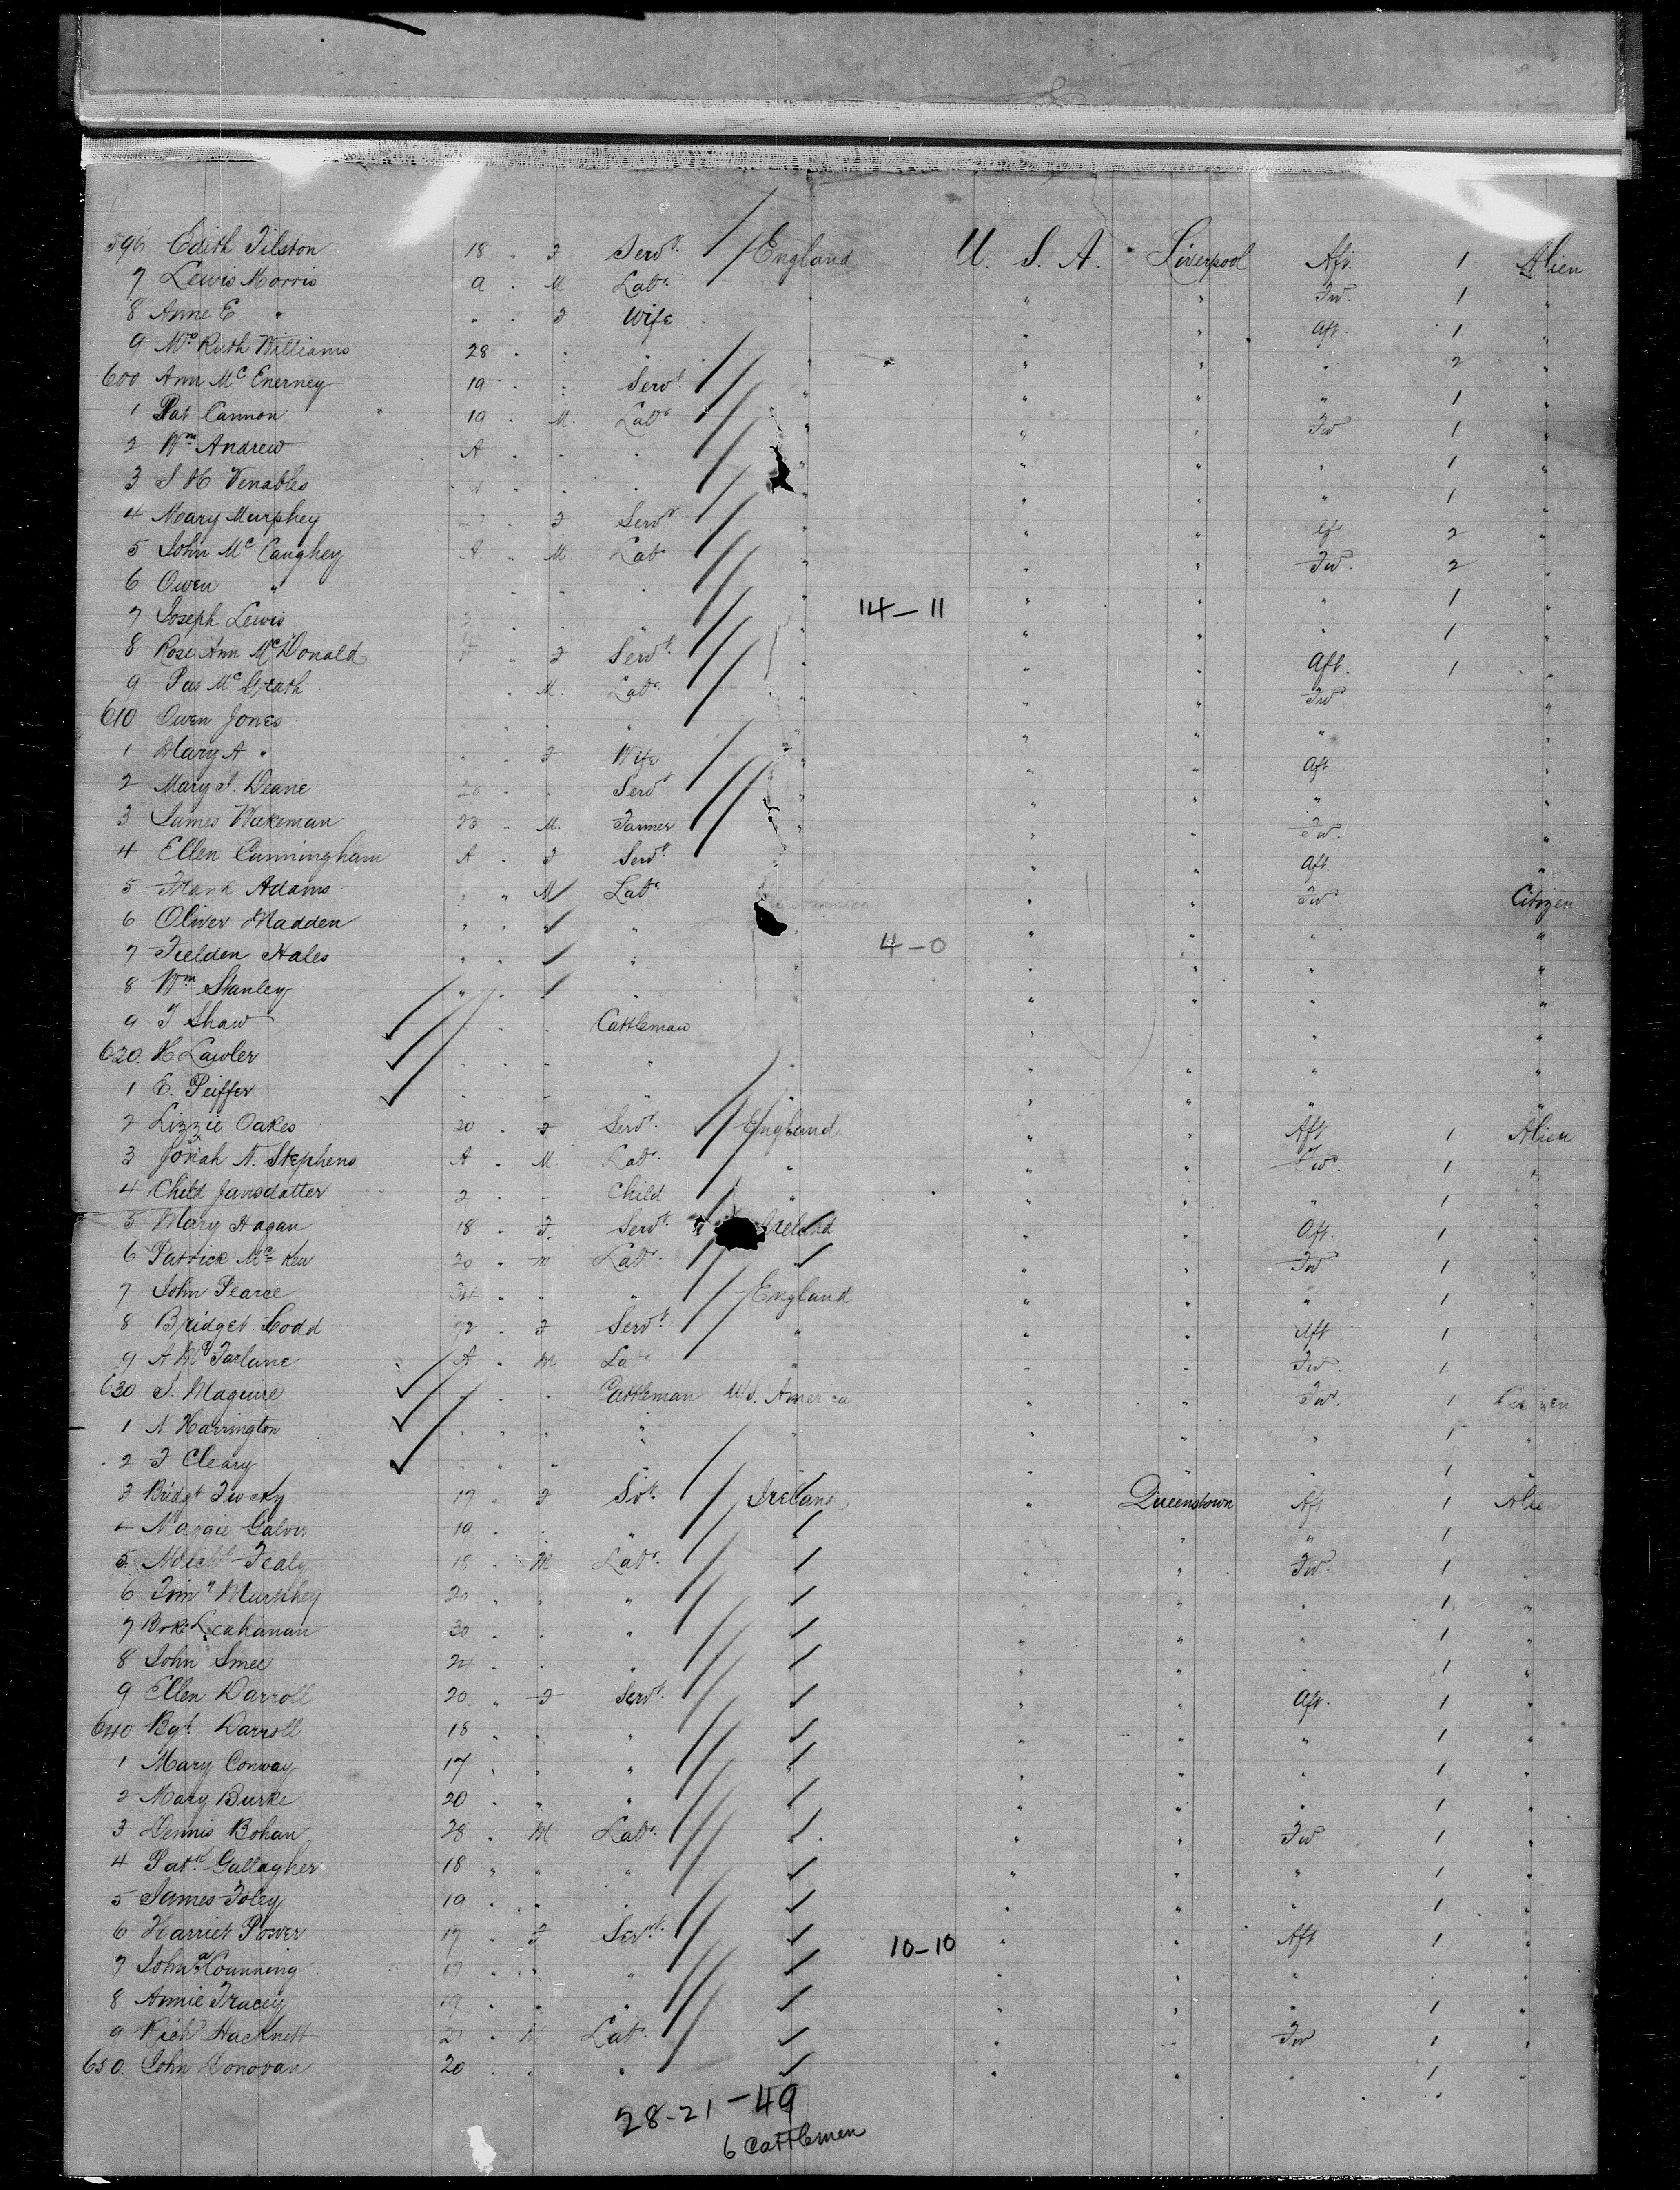 596 Edith Tilston 18 " F Servt. England U. S. A. Liverpool Aft. 1 Alien
7 Lewis Morris A " M Labr. " " Fwd. 1 "
8 Anne E " " " F Wife " " Aft. 1 "
9 Mrs Ruth Williams 28 " " " " " " " 2 "
600 Ann Mc Enerney 19 " " Servt. " " " " 1 "
1 Pat Cannon 19 " M. Labr " " " Fwd 1 "
2 Wm Andrew A " " " " " " " 1 "
3 S H Venables " " " " " " " 1 "
4 Mary Murphey " F Servt " " " Af 2 "
5 John Mc Caughey A " M. Labr " " " Fwd. 2 "
6 Owen " " " " " " " " 1 "
7 Joseph Lewis " " " " 14-11 " " " 1 "
8 Rose Ann McDonald " F Servt. " " " Aft. 1 "
9 Pat McGrath " M. Labr. " " " Fwd "
610 Owen Jones " " " " " " " "
1 Mary A " " " F Wife " " " Aft "
2 Mary J. Deane 28 " " Servt " " " " "
3 James Wakeman 23 " M. Farmer " " " Fwd. "
4 Ellen Cunningham A " F Servt. " " Aft. "
5 Frank Adams " " M Labr America " " Fwd Citizen
6 Oliver Madden " " " " " " " "
7 Fielden Hales " " " " " 4-0 " " " "
8 Wm Stanley " " " " " " " "
9 T Shaw " " " Cattleman " " " "
620. H Lawler " " " " " " " " "
1 E. Peiffer " " " " " " " " "
2 Lizzie Oakes 20 " F Servt. England " " Aft 1 Alien
3 Jonah N. Stephens A " M. Labr. " " " Fwd. 1 "
4 Child Jansdatter 2 " " Child " " " " 1 "
5 Mary Hagan 18 " F. Servt. Ireland " " Aft. 1 "
6 Patrick Mc Kew 20 " m Labr. " " " Fwd 1 "
7 John Pearce 34 " " " England " " " 1 "
8 Bridget Codd 22 " F Servt. " " " Aft 1 "
9 A McFarlane A " M Labr " " " Fwd. 1
630 S. Maguire " " " Cattleman U.S. America " " Fwd. 1 Citizen
1 A Harrington " " " " " " " " 1 "
2 F Cleary " " " " " " " 1 "
3 Bridgt 17 " F Svt. Ireland " Queenstown Aft 1 Alien
4 Maggie Galvin 19 " " " " " 1 "
5. Michl Fealy 18 " M Labr. " " Fwd. 1 "
6 Timy Murphey 20 " " " " " " 1 "
7 Leahanan 20 " " " " " " 1 "
8 John Smee 24 " " " " " " 1 "
9 Ellen Darroll 20 " F Servt. " " Aft. 1 "
640 Bgt. Darroll 18 " " " " " " 1 "
1 Mary Conway 17 " " " " " " " 1 "
2 Mary Burke 20 " " " " " " 1 "
3 Dennis Bohan 28 " M Labr. " " Fwd 1 "
4 Patk Gallagher 18 " " " " " " 1 "
5 James Foley 19 " " " " " " 1 "
6 Harriet Power 17 " F Servt. 10-10 " " Aft 1 "
7 John 17 " " " " " " "
8 Annie Tracey 19 " " " " " " 1 "
9 Richd Hacknett 21 " M Labr. " " Fwd 1 "
650. John Donovan 20 " " " " " " 1 "
28-21-49
6 Cattlemen